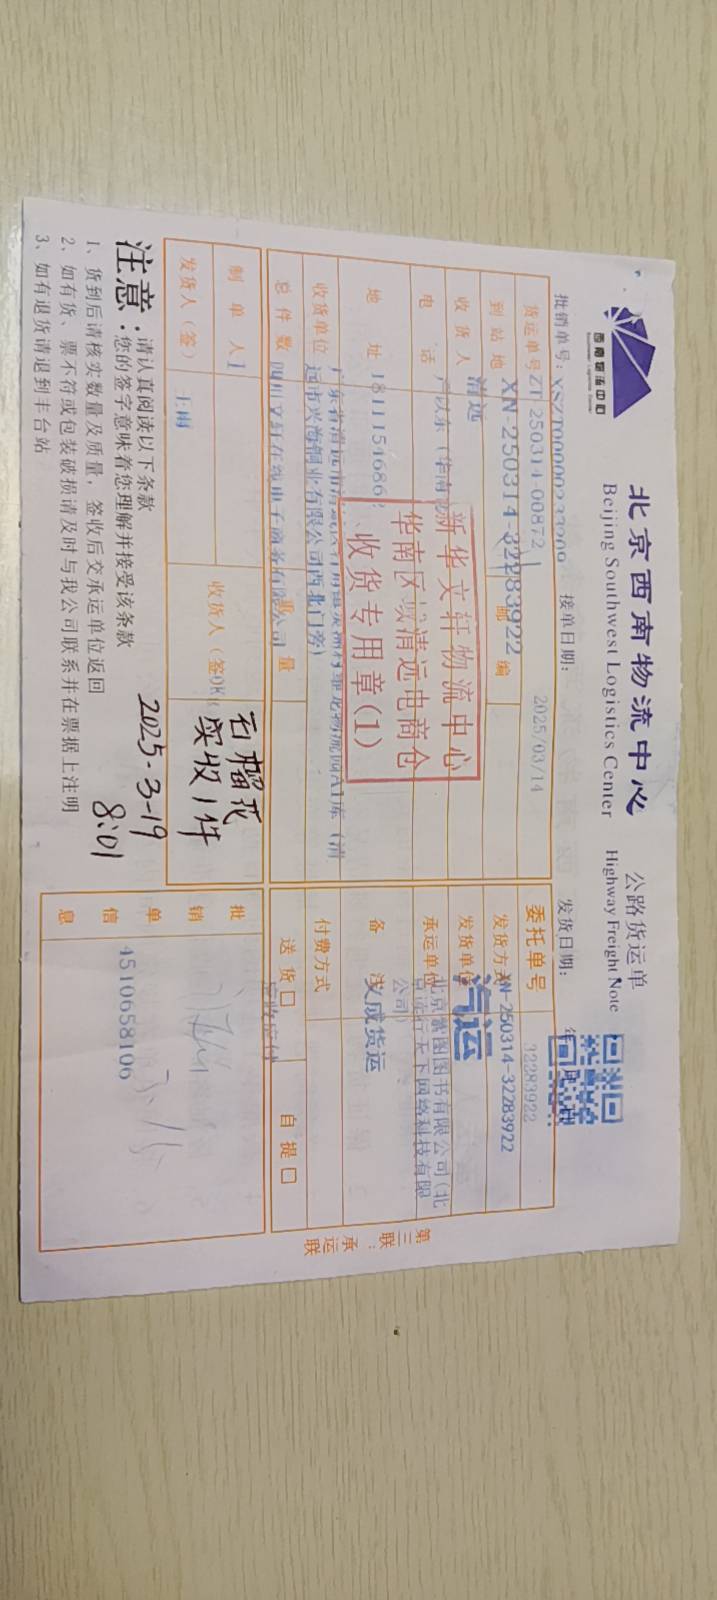 西南物流中心
北京西南物流中心 公路货运单
Beijing Southwest Logistics Center Highway Freight Note
批销单号: 接单日期: 发货日期: 年 月 日
货运单号 ZT 250314 00872 2025/03/14 委托单号 32283922
XN-250314-32283922 XN-250314-32283922
到站地 清远 邮编 发货方式 汽运
收货人 发货单位 北京紫图图书有限公司(北
电话 承运单位
公司)
地址 备 汉成货运
远市兴海铜业有限公司西北门旁)
收货单位 四川文轩在线电子商务有限公司 付费方式 应收应付
总件数 1 量 送货口 自提口
新华文轩物流中心
华南区域清远电商仓
收货专用章(1)
制单人 王雨 收货人(签 石榴花
实收1件
发货人(签) 2025-3-19
8:01
批销单信息
4510658106
注意: 请认真阅读以下条款
您的签字意味着您理解并接受该条款
1、货到后请核实数量及质量，签收后交承运单位返回
2、如有货、票不符或包装破损请及时与我公司联系并在票据上注明
3、如有退货请退到丰台站
第三联:承运联